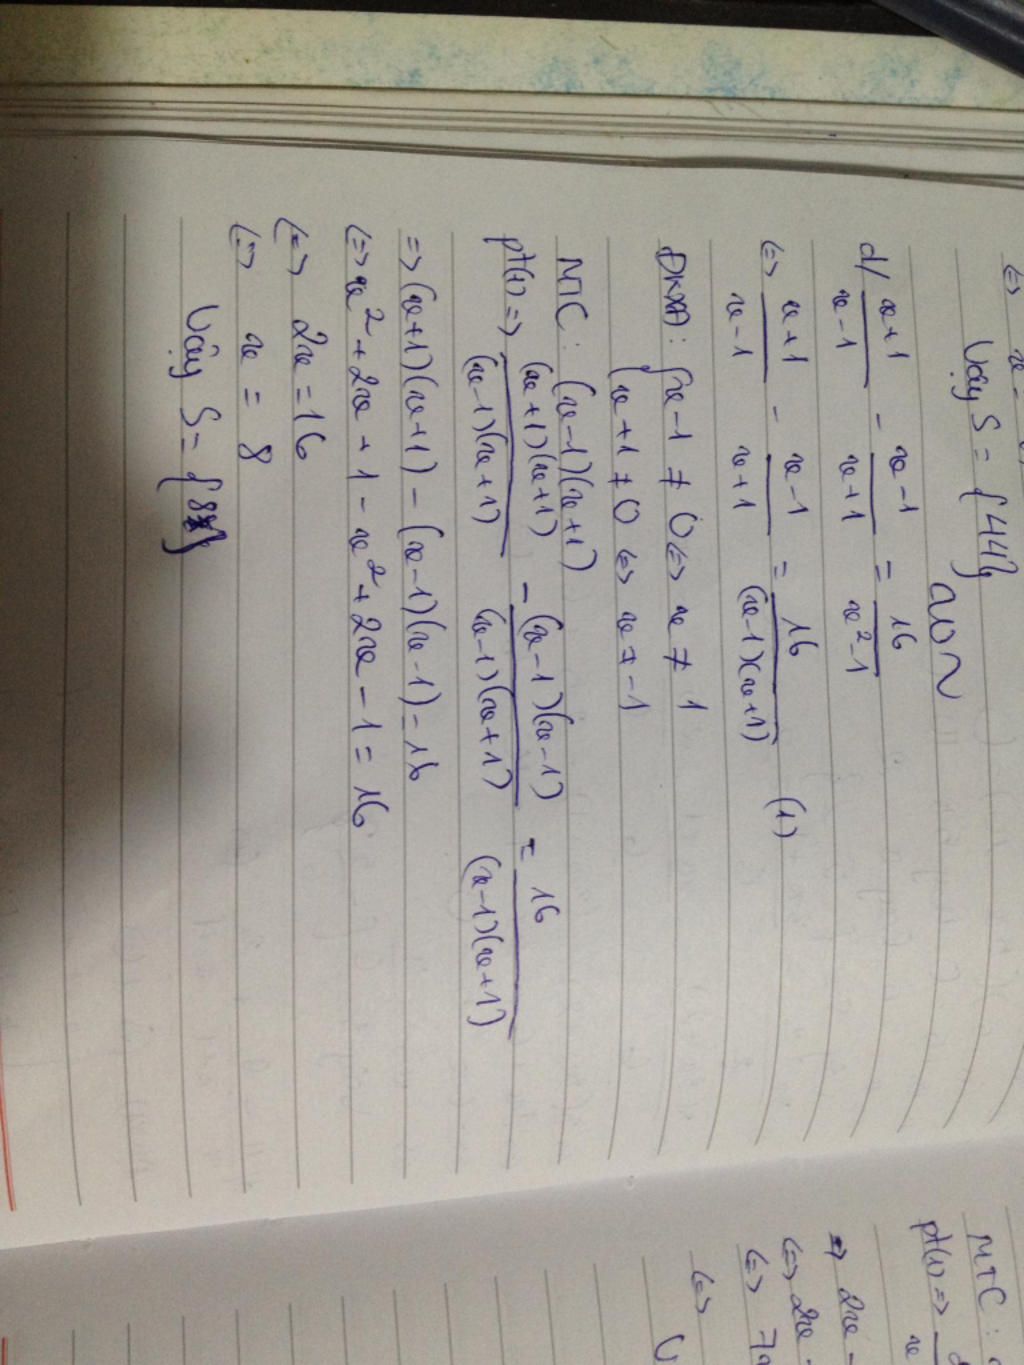 Vậy S = {44}
d/ x+1/x-1 - x-1/x+1 = 16/x²-1
<=> x+1/x-1 - x-1/x+1 = 16/(x-1)(x+1) (1)
ĐKXĐ: { x-1 ≠ 0 <=> x ≠ 1
{ x+1 ≠ 0 <=> x ≠ -1
MTC: (x-1)(x+1)
pt(1) => (x+1)(x+1)/(x-1)(x+1) - (x-1)(x-1)/(x-1)(x+1) = 16/(x-1)(x+1)
=> (x+1)(x+1) - (x-1)(x-1) = 16
<=> x² + 2x + 1 - x² + 2x - 1 = 16
<=> 2x = 16
<=> x = 8
Vậy S = {8}
MTC:
pt(1) =>
=> 2x -
<=> 2x -
<=>
<=>